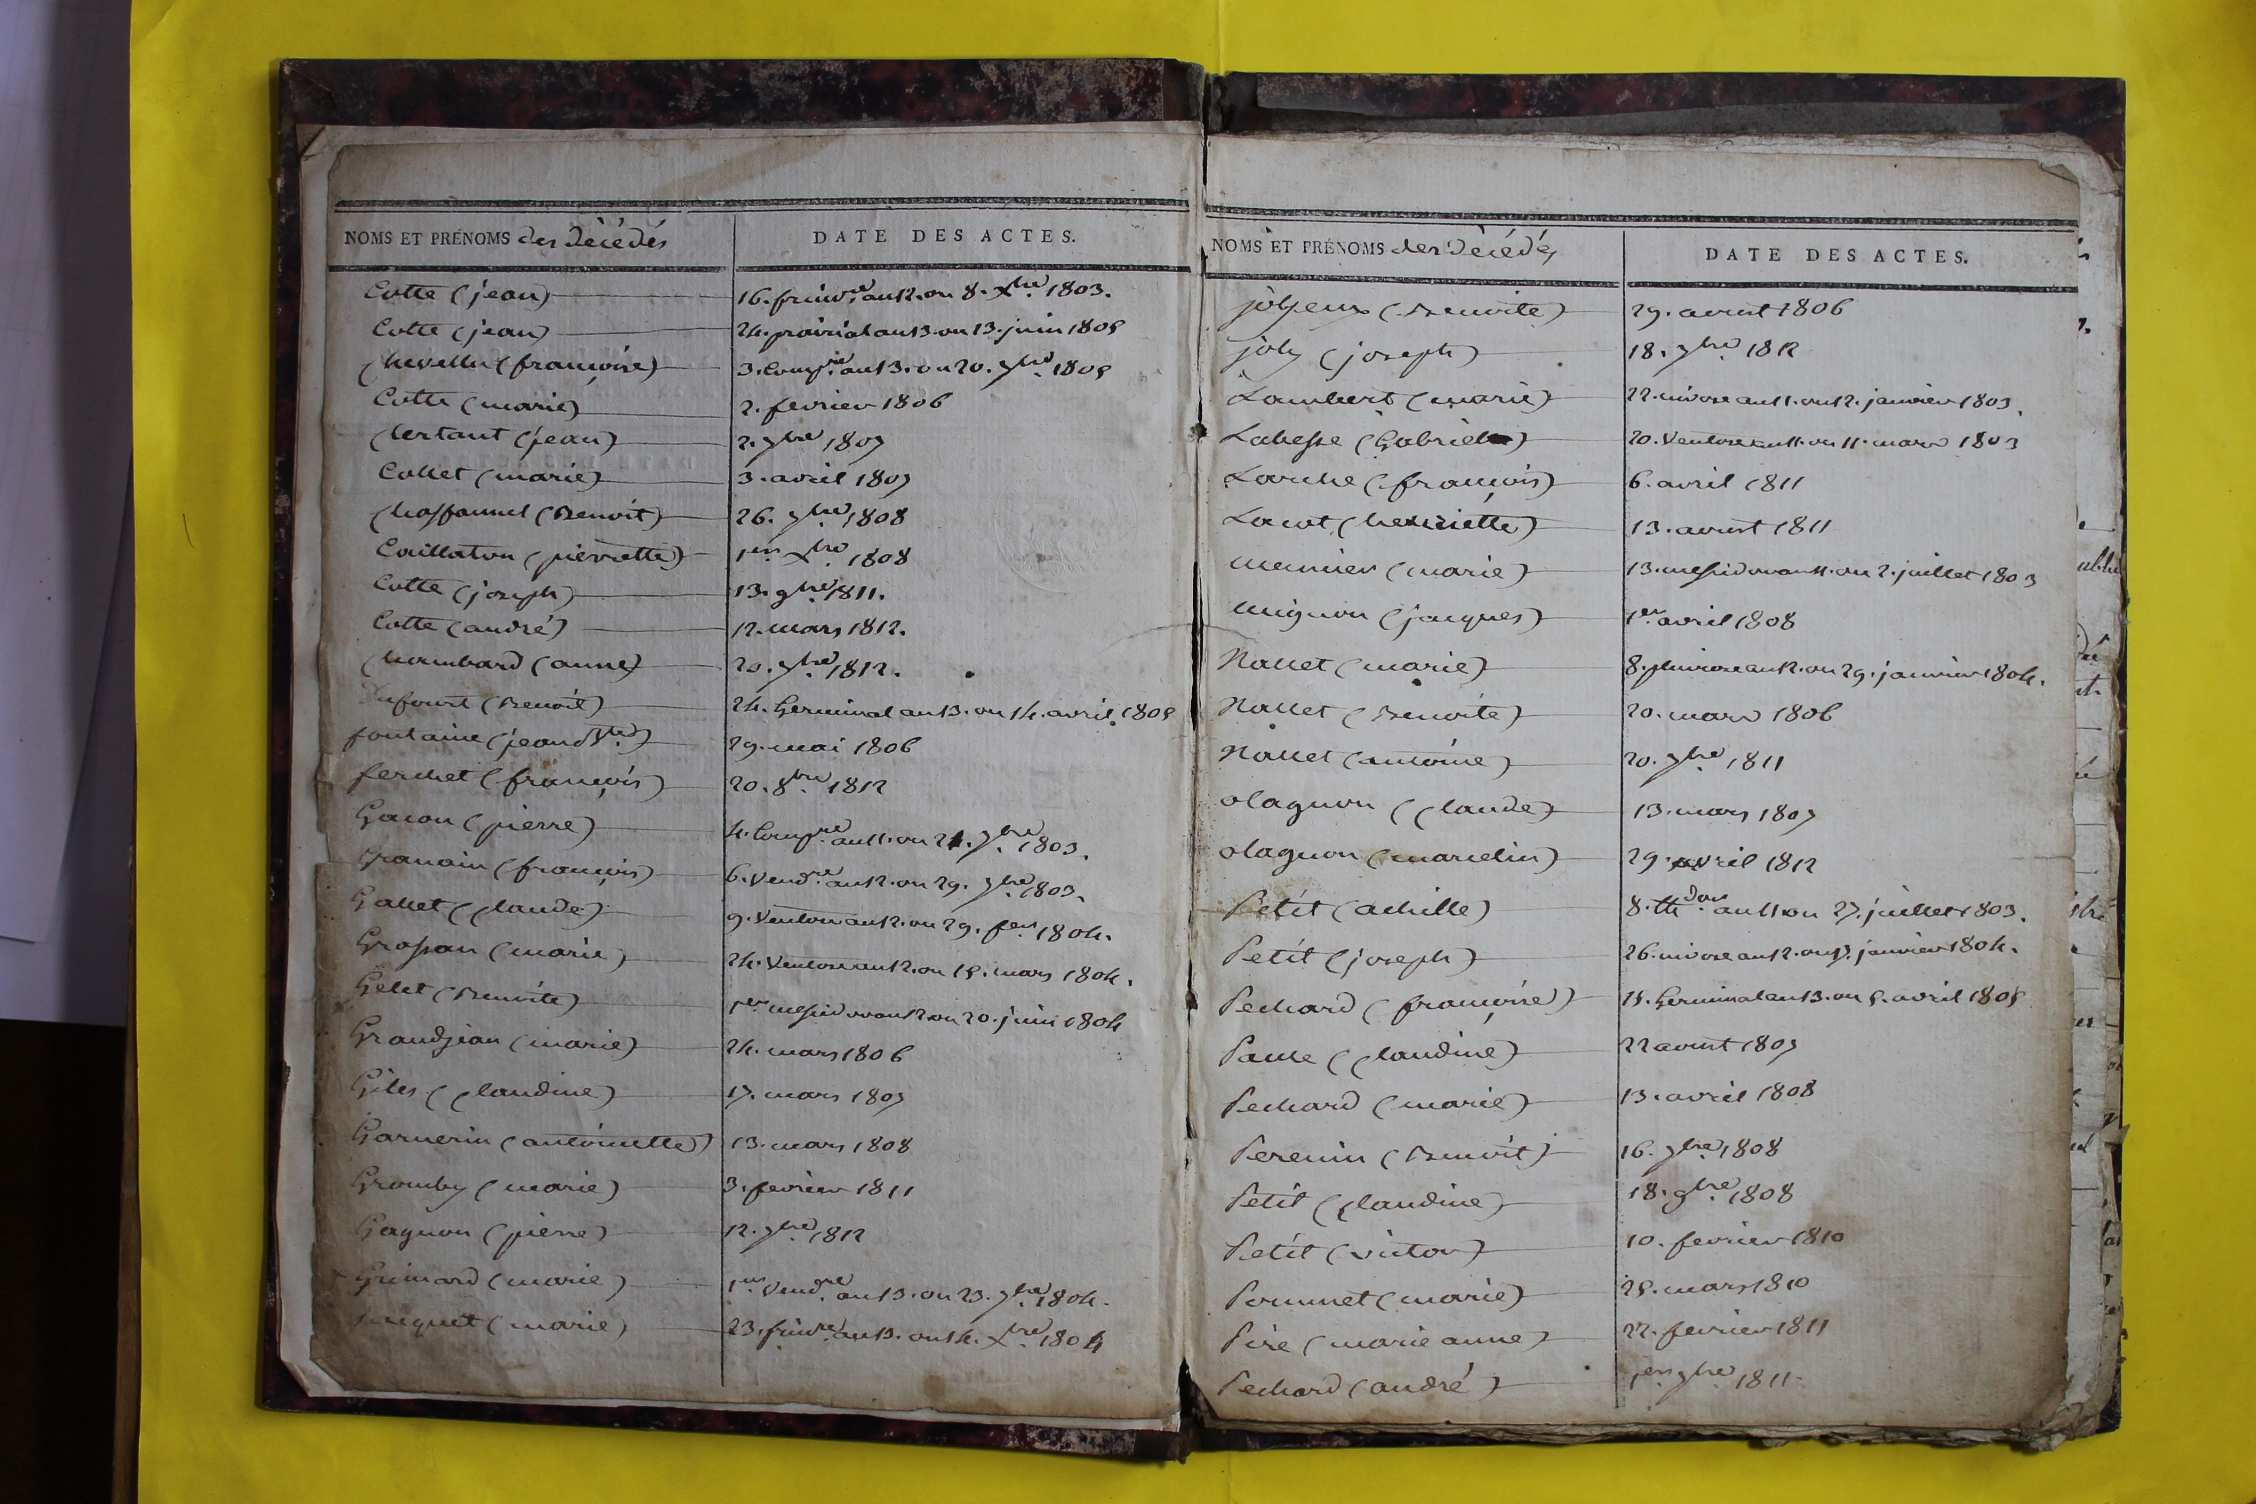 NOMS ET PRÉNOMS des Décédés DATE DES ACTES.
Cotte (jean) 16. frim.re an 12. ou 8. Xbre. 1803.
Cotte (jean) 24. prairial an 13. ou 13. juin 1805
(françoise) 3. Comp.re an 13. ou 20. 7bre. 1805
Cotte (marie) 2. fevrier 1806
Clertant (jean) 2. 7bre 1807
Collet (marie) 3. avril 1807
Chaffonnel (Benoit) 26. 7bre. 1808
Caillaton (pierrette) 1er Xbre. 1808
Cotte (joseph) 13. 9bre. 1811.
Cotte (andré) 12. mars 1812.
Chambard (anne) 20. 7bre. 1812.
Dufourt (Benoit) 24. Germinal an 13. ou 14. avril. 1805
fontaine (jean Bte.) 29. mai 1806
ferchet (françois) 20. 8bre. 1812
Gacon (pierre) 4. Comp.re an 11. ou 21. 7bre. 1803.
(françois) 6. Vend.re an 12. ou 29. 7bre. 1803.
Gallet (Claude) 9. Ventose an 12. ou 29. fer. 1804.
Grosjean (marie) 24. Ventose an 12. ou 15. mars 1804.
Gelet (Benoite) 1er messidor an 12. ou 20. juin 1804
Grandjean (marie) 24. mars 1806
Giles (Claudine) 17. mars 1807
Garnerin (antoinette) 13. mars 1808
Gromby (marie) 3. fevrier 1811
Gagnon (pierre) 12. 7bre. 1812
Guinard (marie) 1er. Vend.re an 13. ou 23. 7bre. 1804.
(marie) 23. frim.re an 13. ou 14. Xbre. 1804
NOMS ET PRÉNOMS des Décédés DATE DES ACTES.
jolyeux (Benoite) 29. aoust 1806
joly (joseph) 18. 7bre. 1812
Lambert (marie) 22. nivose an 11. ou 12. janvier 1803.
Labesse (Gabriel) 20. Ventose an 11. ou 11. mars 1803
Larche (françois) 6. avril 1811
Lacot (henriette) 13. aoust 1811
meunier (marie) 13. messidor an 11. ou 2. juillet 1803
mignon (jacques) 1er. avril 1808
Nallet (marie) 8. pluviose an 12. ou 29. janvier 1804.
Nallet (Benoite) 20. mars 1806
Nallet (antoine) 20. 7bre. 1811
olagnon (Claude) 13. mars 1807
olagnon (marcelin) 29. avril 1812
Petit (achille) 8. thdor an 11. ou 27. juillet 1803.
Petit (joseph) 26. nivose an 12. ou 17. janvier 1804.
Pechard (françoise) 15. Germinal an 13. ou 5. avril 1805
(Claudine) 22 aoust 1807
Pechard (marie) 13. avril 1808
Perenin (Benoit) 16. 7bre. 1808
Petit (Claudine) 18. 9bre. 1808
Petit (victor) 10. fevrier 1810
Pommet (marie) 25. mars 1810
Pire (marie anne) 22. fevrier 1811
Pechard (andré) 1er. 7bre. 1811.